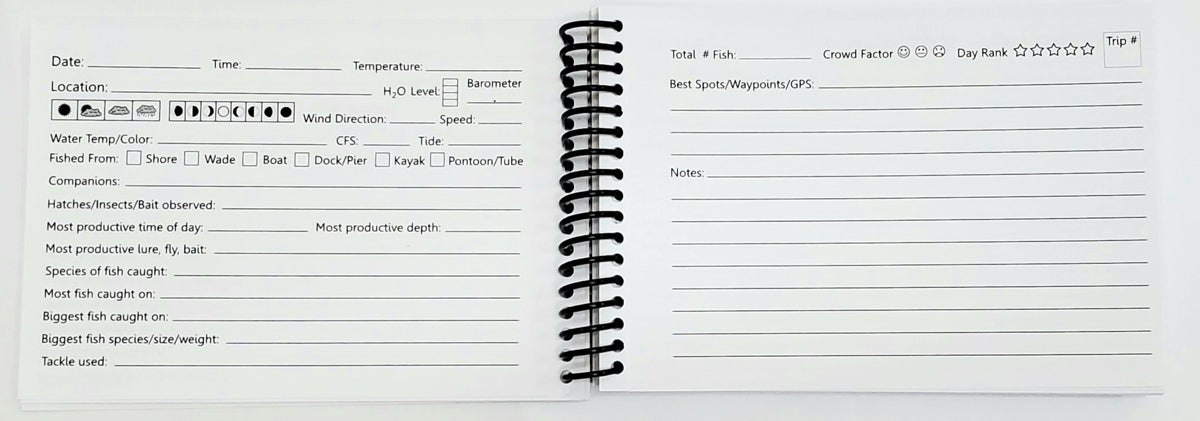 Date: Time: Temperature:
Location: H₂O Level: Barometer
Wind Direction: Speed:
Water Temp/Color: CFS: Tide:
Fished From: Shore Wade Boat Dock/Pier Kayak Pontoon/Tube
Companions:
Hatches/Insects/Bait observed:
Most productive time of day: Most productive depth:
Most productive lure, fly, bait:
Species of fish caught:
Most fish caught on:
Biggest fish caught on:
Biggest fish species/size/weight:
Tackle used:
Total # Fish: Crowd Factor Day Rank Trip #
Best Spots/Waypoints/GPS:
Notes: